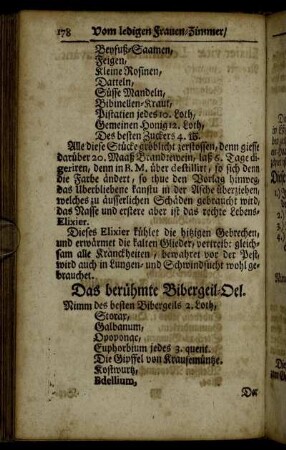 178 Vom ledigen Frauen-Zimmer/
Beyfuß-Saamen,
Feigen,
Kleine Rosinen,
Datteln,
Süsse Mandeln,
Bibinellen-Kraut,
Pistatien jedes 10. Loth,
Gemeinen Honig 12. Loth,
Des besten Zuckers 4. W.
Alle diese Stücke gröblicht zerstossen, denn giesse
darüber 20. Maaß Brandtewein, laß 6. Tage di-
geriren, denn in B. M. über destillirt, so sich denn
die Farbe ändert, so thue den Vorlag hinweg,
das Uberbliebene kanstu in der Asche überziehen,
welches zu äusserlichen Schäden gebraucht wird,
das Nasse und erstere aber ist das rechte Lebens-
Elixier.
Dieses Elixier kühlet die hitzigen Gebrechen,
und erwärmet die kalten Glieder, vertreibt gleich-
sam alle Kranckheiten, bewahret vor der Pest,
wird auch in Lungen- und Schwindsucht wohl ge-
brauchet.
Das berühmte Bibergeil-Oel.
Nimm des besten Bibergeils 2. Loth,
Storax,
Galbanum,
Opoponac,
Euphorbium jedes 3. quent.
Die Gipffel von Krausemüntze,
Kostwurtz,
Bdellium,